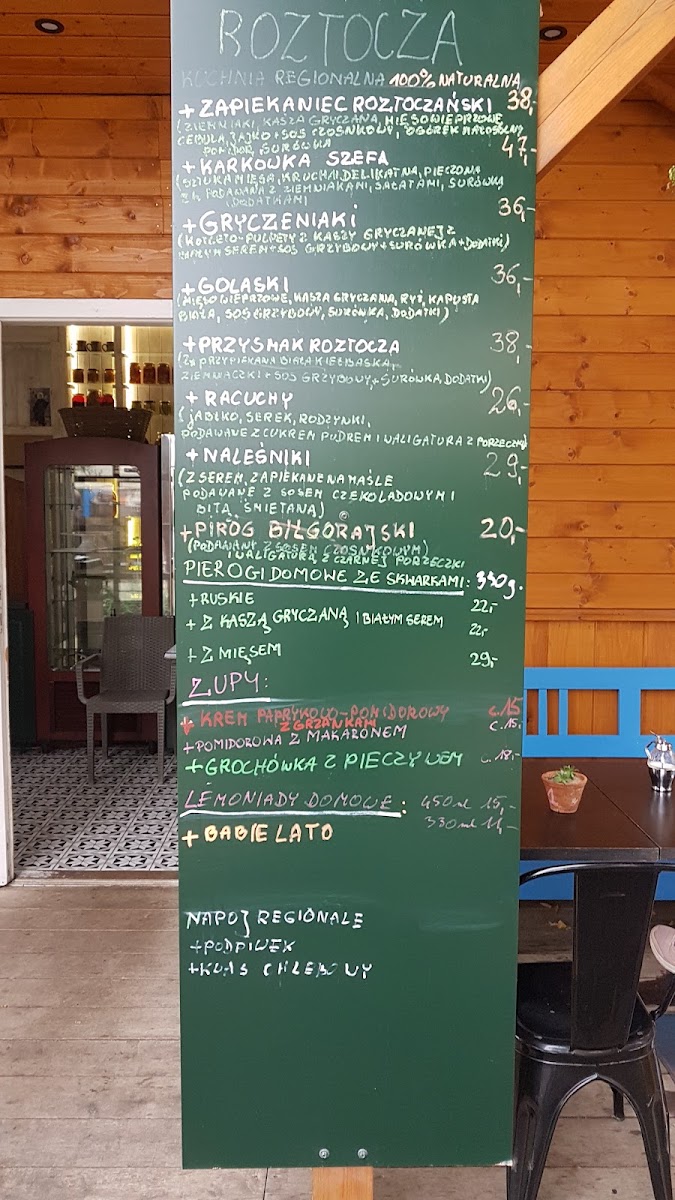 ROZTOCZA
KUCHNIA REGIONALNA 100% NATURALNA
+ ZAPIEKANIEC ROZTOCZAŃSKI 38,-
(ZIEMNIAKI, KASZA GRYCZANA, MIĘSO WIEPRZOWE,
CEBULA, JAJKO + SOS CZOSNKOWY, OGÓREK MAŁOSOLNY
POMIDOR, SURÓWKA
+ KARKÓWKA SZEFA 47,-
(SZTUKA MIĘSA, KRUCHA I DELIKATNA, PIECZONA
PODAWANA Z ZIEMNIAKAMI, SAŁATAMI, SURÓWKĄ
DODATKAMI)
+ GRYCZENIAKI 36,-
(KOTLETO-PULPETY Z KASZY GRYCZANEJ Z
BIAŁYM SEREM + SOS GRZYBOWY + SURÓWKA + DODATKI)
+ GOŁĄSKI 36,-
(MIĘSO WIEPRZOWE, KASZA GRYCZANA, RYŻ, KAPUSTA
BIAŁA, SOS GRZYBOWY, SURÓWKA, DODATKI)
+ PRZYSMAK ROZTOCZA 38,-
(2x PRZYPIEKANA BIAŁA KIEŁBASKA,
ZIEMNIACZKI + SOS GRZYBOWY + SURÓWKA, DODATKI)
+ RACUCHY 26,-
(JABŁKO, SEREK, RODZYNKI,
PODAWANE Z CUKREM PUDREM I WALIGATURĄ Z PORZECZKI)
+ NALEŚNIKI 29,-
(Z SEREM, ZAPIEKANE NA MAŚLE
PODAWANE Z SOSEM CZEKOLADOWYM I
BITĄ ŚMIETANĄ)
+ PIRÓG BIŁGORAJSKI 20,-
(PODAWANY Z SOSEM CZOSNKOWYM)
I WALIGATURĄ Z CZARNEJ PORZECZKI
PIEROGI DOMOWE ZE SKWARKAMI: 330g.
+ RUSKIE 22,-
+ Z KASZĄ GRYCZANĄ I BIAŁYM SEREM 22,-
+ Z MIĘSEM 29,-
ZUPY:
+ KREM PAPRYKOWO-POMIDOROWY c. 15
Z GRZANKAMI
+ POMIDOROWA Z MAKARONEM c. 15,-
+ GROCHÓWKA Z PIECZYWEM c. 18,-
LEMONIADY DOMOWE: 450ml 15,-
330ml 11,-
+ BABIE LATO
NAPOJ REGIONALE
+ PODPIWEK
+ KWAS CHLEBOWY